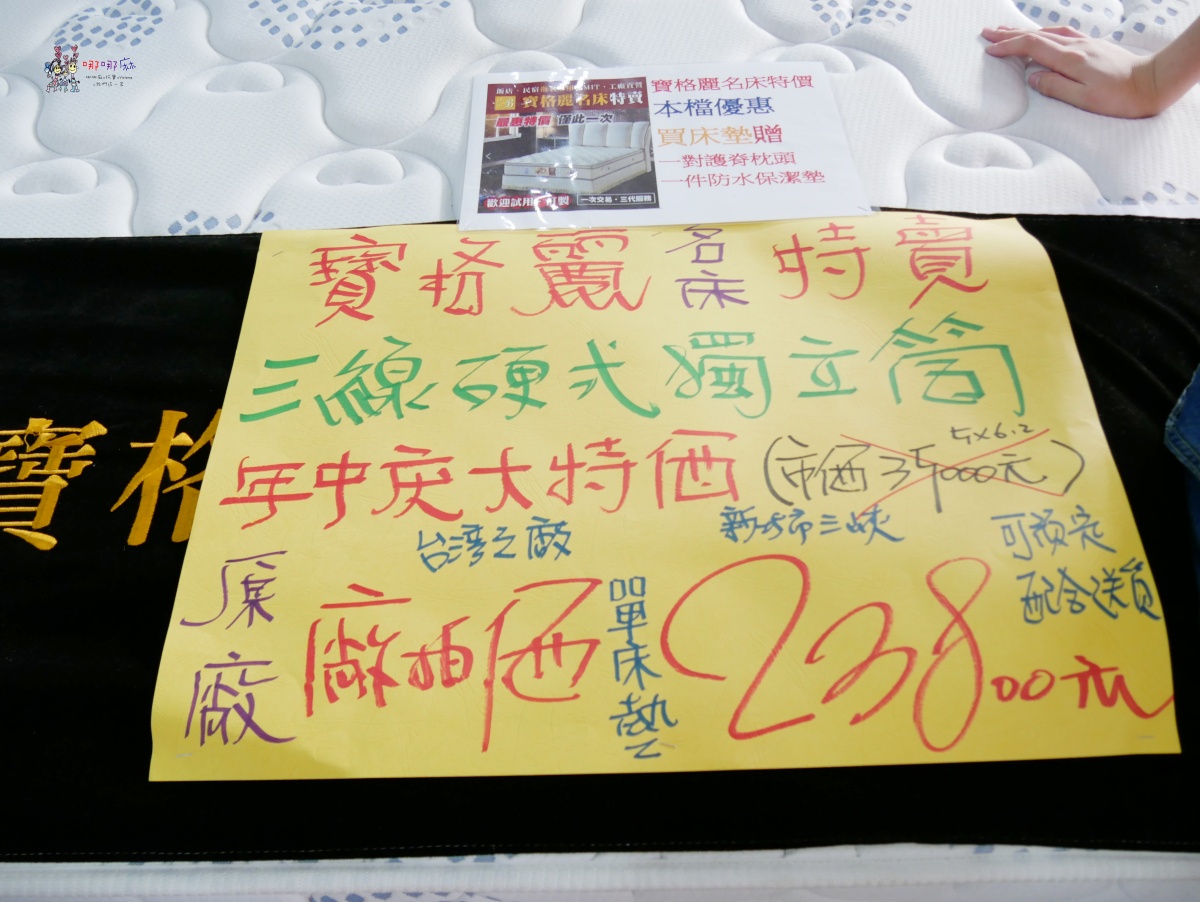 哪哪麻
飯店、民宿
MIT、工廠直營
寶格麗名床特賣
最惠特價 僅此一次
歡迎試用
訂製
一次交易、三代服務
寶格麗名床特價
本檔優惠
買床墊贈
一對護脊枕頭
一件防水保潔墊
寶格麗名床特賣
三線硬式獨立筒
年中庆大特価
5×6.2
(市価35000元)
台湾之廠
新北市三峽
可預定
配合送貨
原廠
廠抽価
單床墊
23800元
寶格